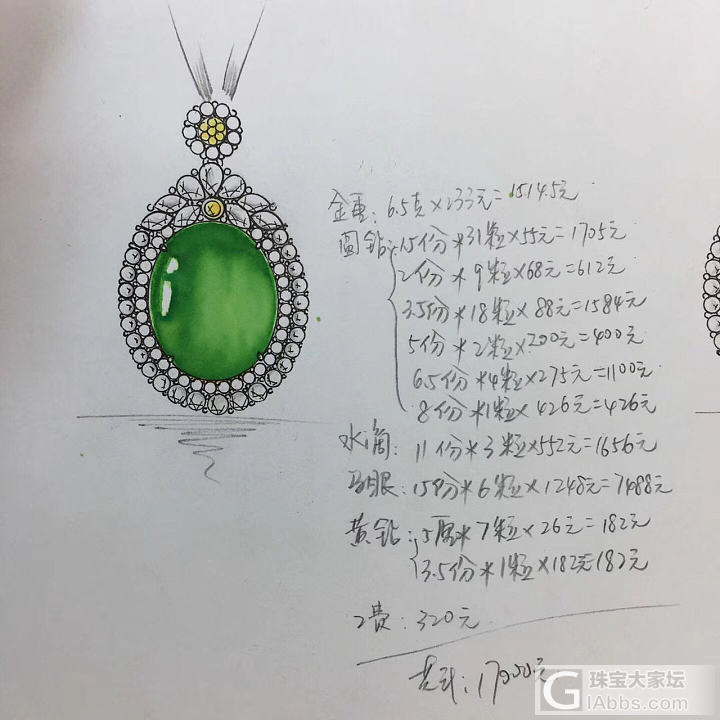 金重: 6.5克×233元=1514.5元
圆钻: 1.5份*31粒×55元=1705元
2份*9粒×68元=612元
3.5份*18粒×88元=1584元
5份*2粒×200元=400元
6.5份*4粒×275元=1100元
8份*1粒×426元=426元
水滴: 11份*3粒×552元=1656元
马眼: 15份*6粒×1248元=7488元
黄钻: 5厘*7粒×26元=182元
3.5份*1粒×182元=182元
工费: 320元
共计: 元
珠宝大家坛
IAbbs.com